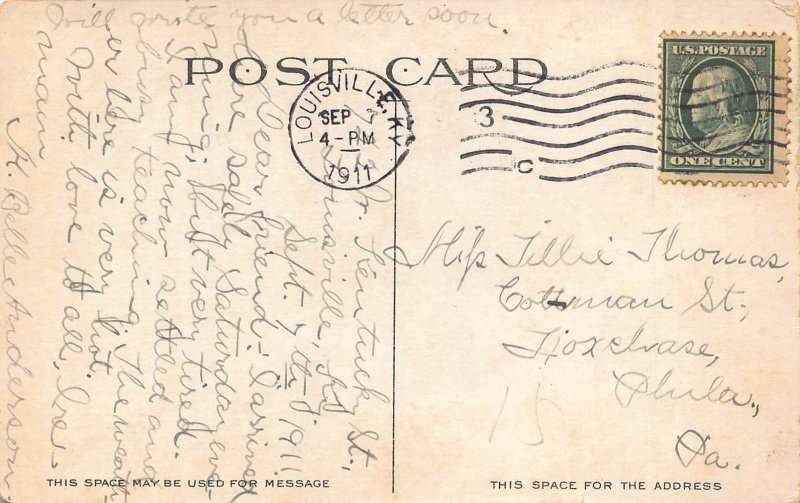 Will write you a letter soon
POST CARD
LOUISVILLE, KY
SEP 7
4-PM
1911
3
C
U.S. POSTAGE
ONE CENT
W. Kentucky St.,
Louisville, Ky
Sept. 7th, 1911
Dear friend - I arrived
here safely Saturday eve-
ning, but very tired.
I am now settled and
busy teaching. The weath-
er here is very hot.
With love to all, I re-
main
Belle Anderson
Miss Tillie Thomas,
Cottman St.,
Foxchase,
Phila.,
Pa.
15
THIS SPACE MAY BE USED FOR MESSAGE
THIS SPACE FOR THE ADDRESS